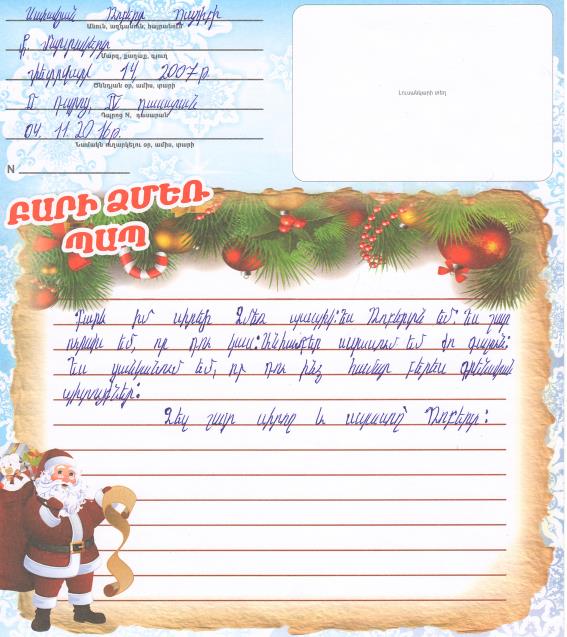 Ռոբերտ
Անուն, ազգանուն, հայրանուն
ք. Մարտակերտ
Մարզ, քաղաք, գյուղ
փետրվարի 14 2007թ.
Ծննդյան օր, ամիս, տարի
դպրոց, IV դասարան
Դպրոց N, դասարան
04. 11. 2016թ.
Նամակն ուղարկելու օր, ամիս, տարի
N
Լուսանկարի տեղ
ԲԱՐԻ ՁՄԵՌ
ՊԱՊ
Բարև իմ սիրելի Ձմեռ պապիկ: Ես Ռոբերտն եմ: Ես շատ
ուրախ եմ, որ դու կաս: Անհամբեր սպասում եմ քո գալուն:
Ես ցանկանում եմ, որ դու ինձ համար բերես գունավոր
Ձեզ շատ սիրող և սպասող՝ Ռոբերտ: